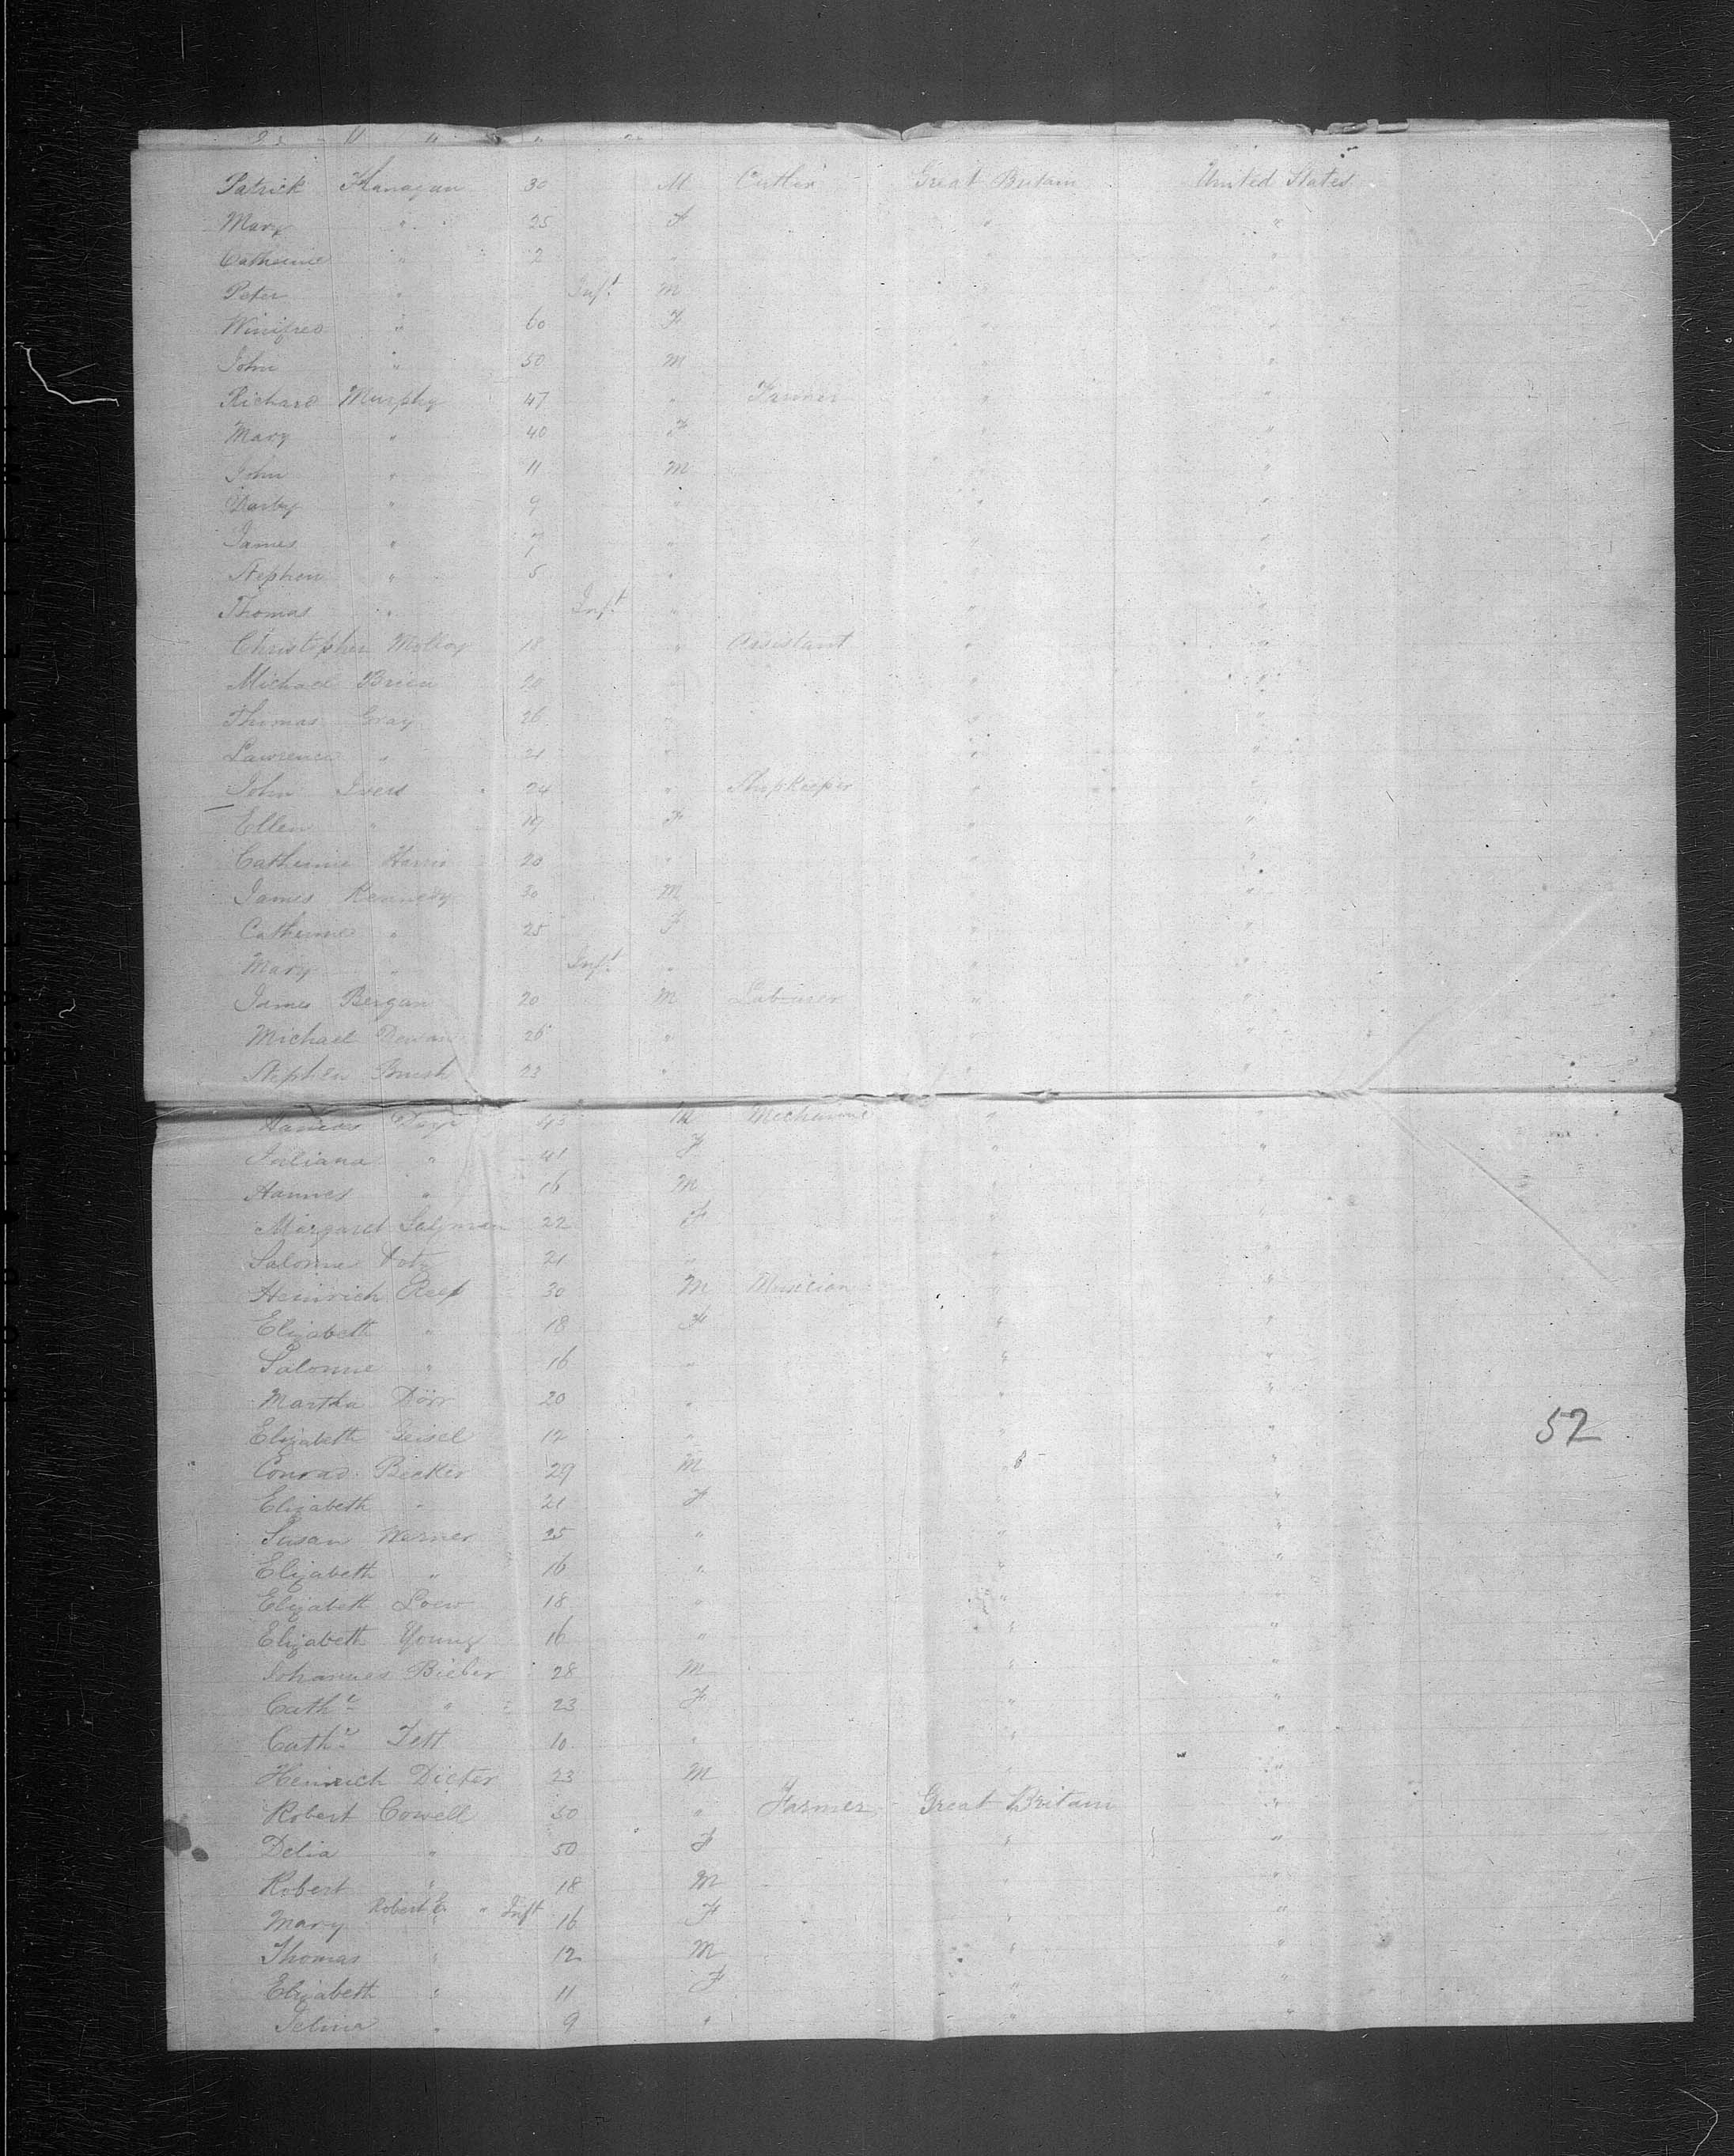 Patrick Flanagan 30 M Cutler Great Britain United States
Mary " 25 F " "
Catherine " 2 " " "
Peter " Inft M " "
Winifred " 60 F " "
John " 50 M " "
Richard Murphy 47 " Farmer " "
Mary " 40 F " "
John " 11 M " "
Darby " 9 " " "
James " 7 " " "
Stephen " 5 " " "
Thomas " Inft " " "
Christopher Molloy 18 " Assistant " "
Michael Brien 20 " " "
Thomas Gray 26 " " "
Lawrence " 21 " " "
John Ivers 24 " Shopkeeper " "
Ellen " 19 F " "
Catherine Harris 20 " " "
James Kennedy 30 M " "
Catherine " 25 F " "
Mary " Inft " " "
James Bergan 20 M Labourer " "
Michael 26 " " "
Stephen 23 " " "
43 M Mechanic " "
Juliana " 41 F " "
Hannes " 16 M " "
Margaret 22 F " "
Salome 21 " " "
Heinrich 30 M Musician " "
Elizabeth " 18 F " "
Salome " 16 " " "
Martha Dörr 20 " " "
Elizabeth Geisel 12 " " "
Conrad Becker 29 M " "
Elizabeth " 21 F " "
Susan Werner 25 " " "
Elizabeth " 16 " " "
Elizabeth Loew 18 " " "
Elizabeth Young 16 " " "
Johannes Bieber 28 M " "
Cathe " 23 F " "
Cathe 10 " " "
Heinrich Dieter 23 M " "
Robert Cowell 50 " Farmer Great Britain "
Delia " 50 F " "
Robert " 18 M " "
Robert E. " Inft
Mary " 16 F " "
Thomas " 12 M " "
Elizabeth " 11 F " "
Selina " 9 " " "
52